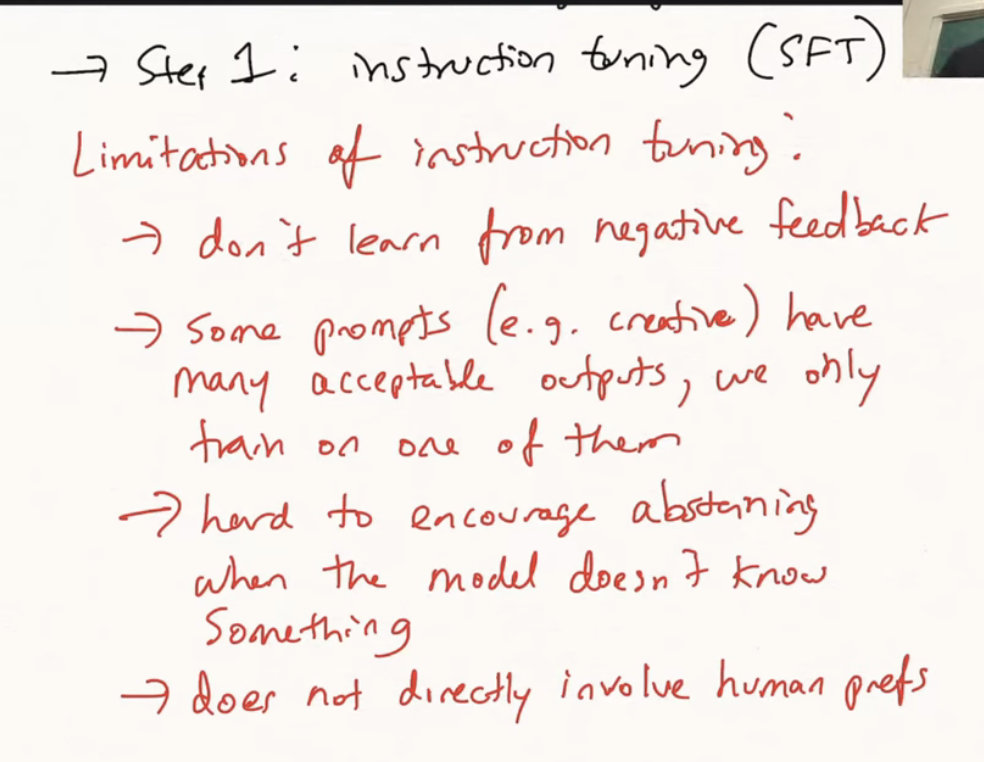 → Step 1: instruction tuning (SFT)
Limitations of instruction tuning:
→ don't learn from negative feedback
→ some prompts (e.g. creative) have
many acceptable outputs, we only
train on one of them
→ hard to encourage abstaining
when the model doesn't know
something
→ does not directly involve human prefs